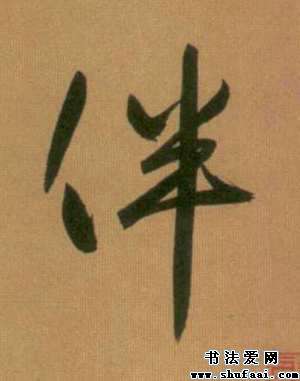 伴
书法爱网
www.shufaai.com